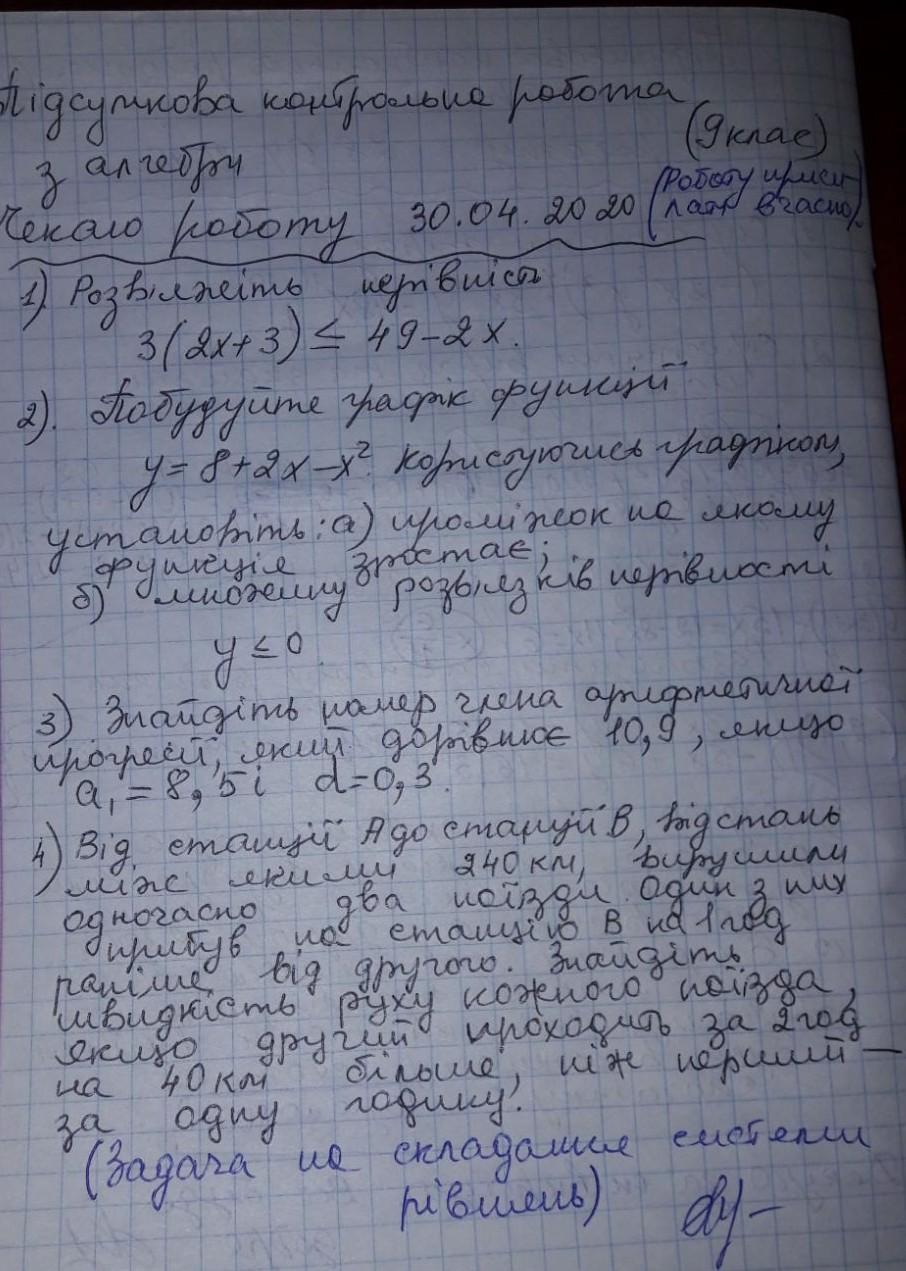 Підсумкова контрольна робота
(9 клас)
з алгебри
Чекаю роботу 30.04.2020 (Роботу присилати вчасно)
1) Розв'яжіть нерівність
3(2x+3) ≤ 49-2x.
2). Побудуйте графік функції
y = 8+2x-x². Користуючись графіком,
установіть: а) проміжок на якому
функція зростає;
б) множину розв'язків нерівності
y ≤ 0.
3) Знайдіть номер члена арифметичної
прогресії, який дорівнює 10,9, якщо
a₁ = 8,5 і d=0,3.
4) Від станції А до станції В, відстань
між якими 240 км, вирушили
одночасно два поїзди. Один з них
прибув на станцію В на 1 год
раніше від другого. Знайдіть
швидкість руху кожного поїзда,
якщо другий проходить за 2 год
на 40 км більше, ніж перший —
за одну годину.
(Задача на складання системи
рівнянь)